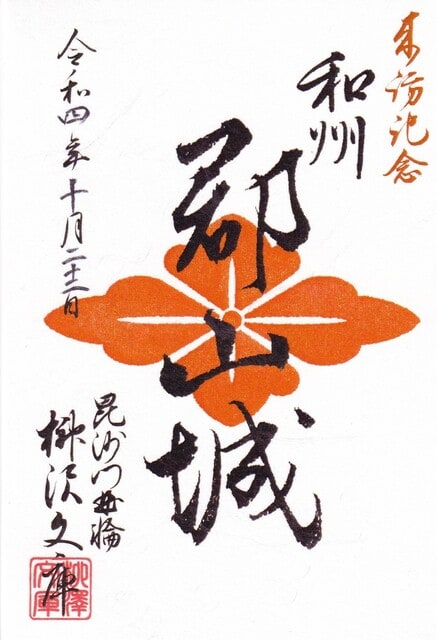 来訪記念
和州
郡山城
令和四年十月二十二日
毘沙門曲輪
柳沢文庫
柳澤文庫